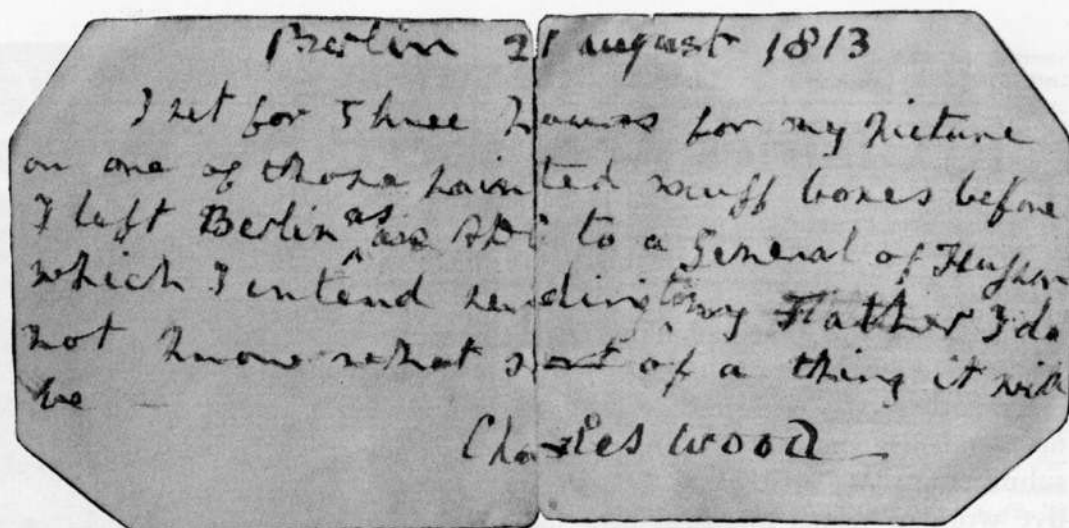 Berlin 21 august 1813
I set for Three houres for my picture
on one of those painted snuff boxes before
I left Berlin as an ADC to a General of Hussars
which I intend sending to my Father I do
not know what sort of a thing it will
be —
Charles Wood —